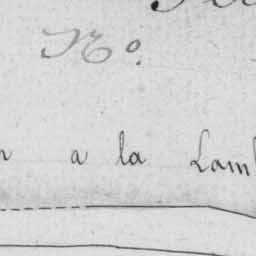 No.
a la Lam